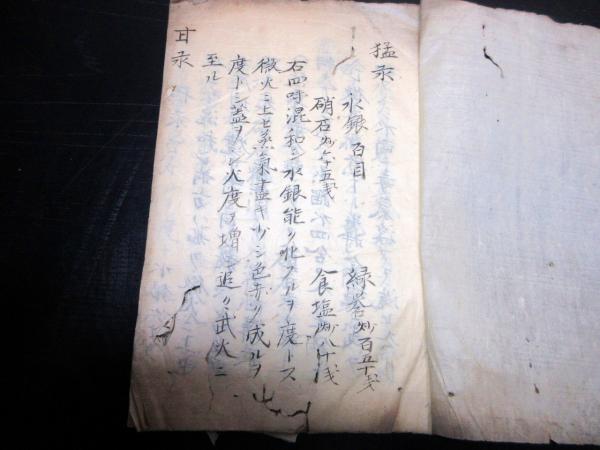 猛汞
水銀 百目 緑礬 炒 百五十戔
硝石 炒 六十五戔 食塩 炒 八十戔
右四味混和シ水銀能ク化スルヲ度トス
微火ニ上セ蒸氣盡キ少シ色赤ク成ルヲ
度トシ蓋ヲシ火度ヲ増 追々武火ニ
至ル
甘汞